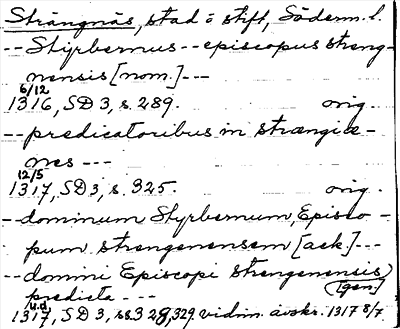 Strängnäs, stad o stift, Söderm. l.
-- Styrbernus -- episcopus streng-
nensis [nom.] ---
6/12
1316, SD 3, s. 289. orig.
-- predicatoribus in strængiæ-
nes ---
12/5
1317, SD 3, s. 325. orig.
- dominum Styrbernum, Episco-
pum strengenensem [ack.] ---
-- domini Episcopi strengenensis
predicta --- [gen.]
u.d.
1317, SD 3, ss 328, 329. vidim. avskr. 1317 8/7